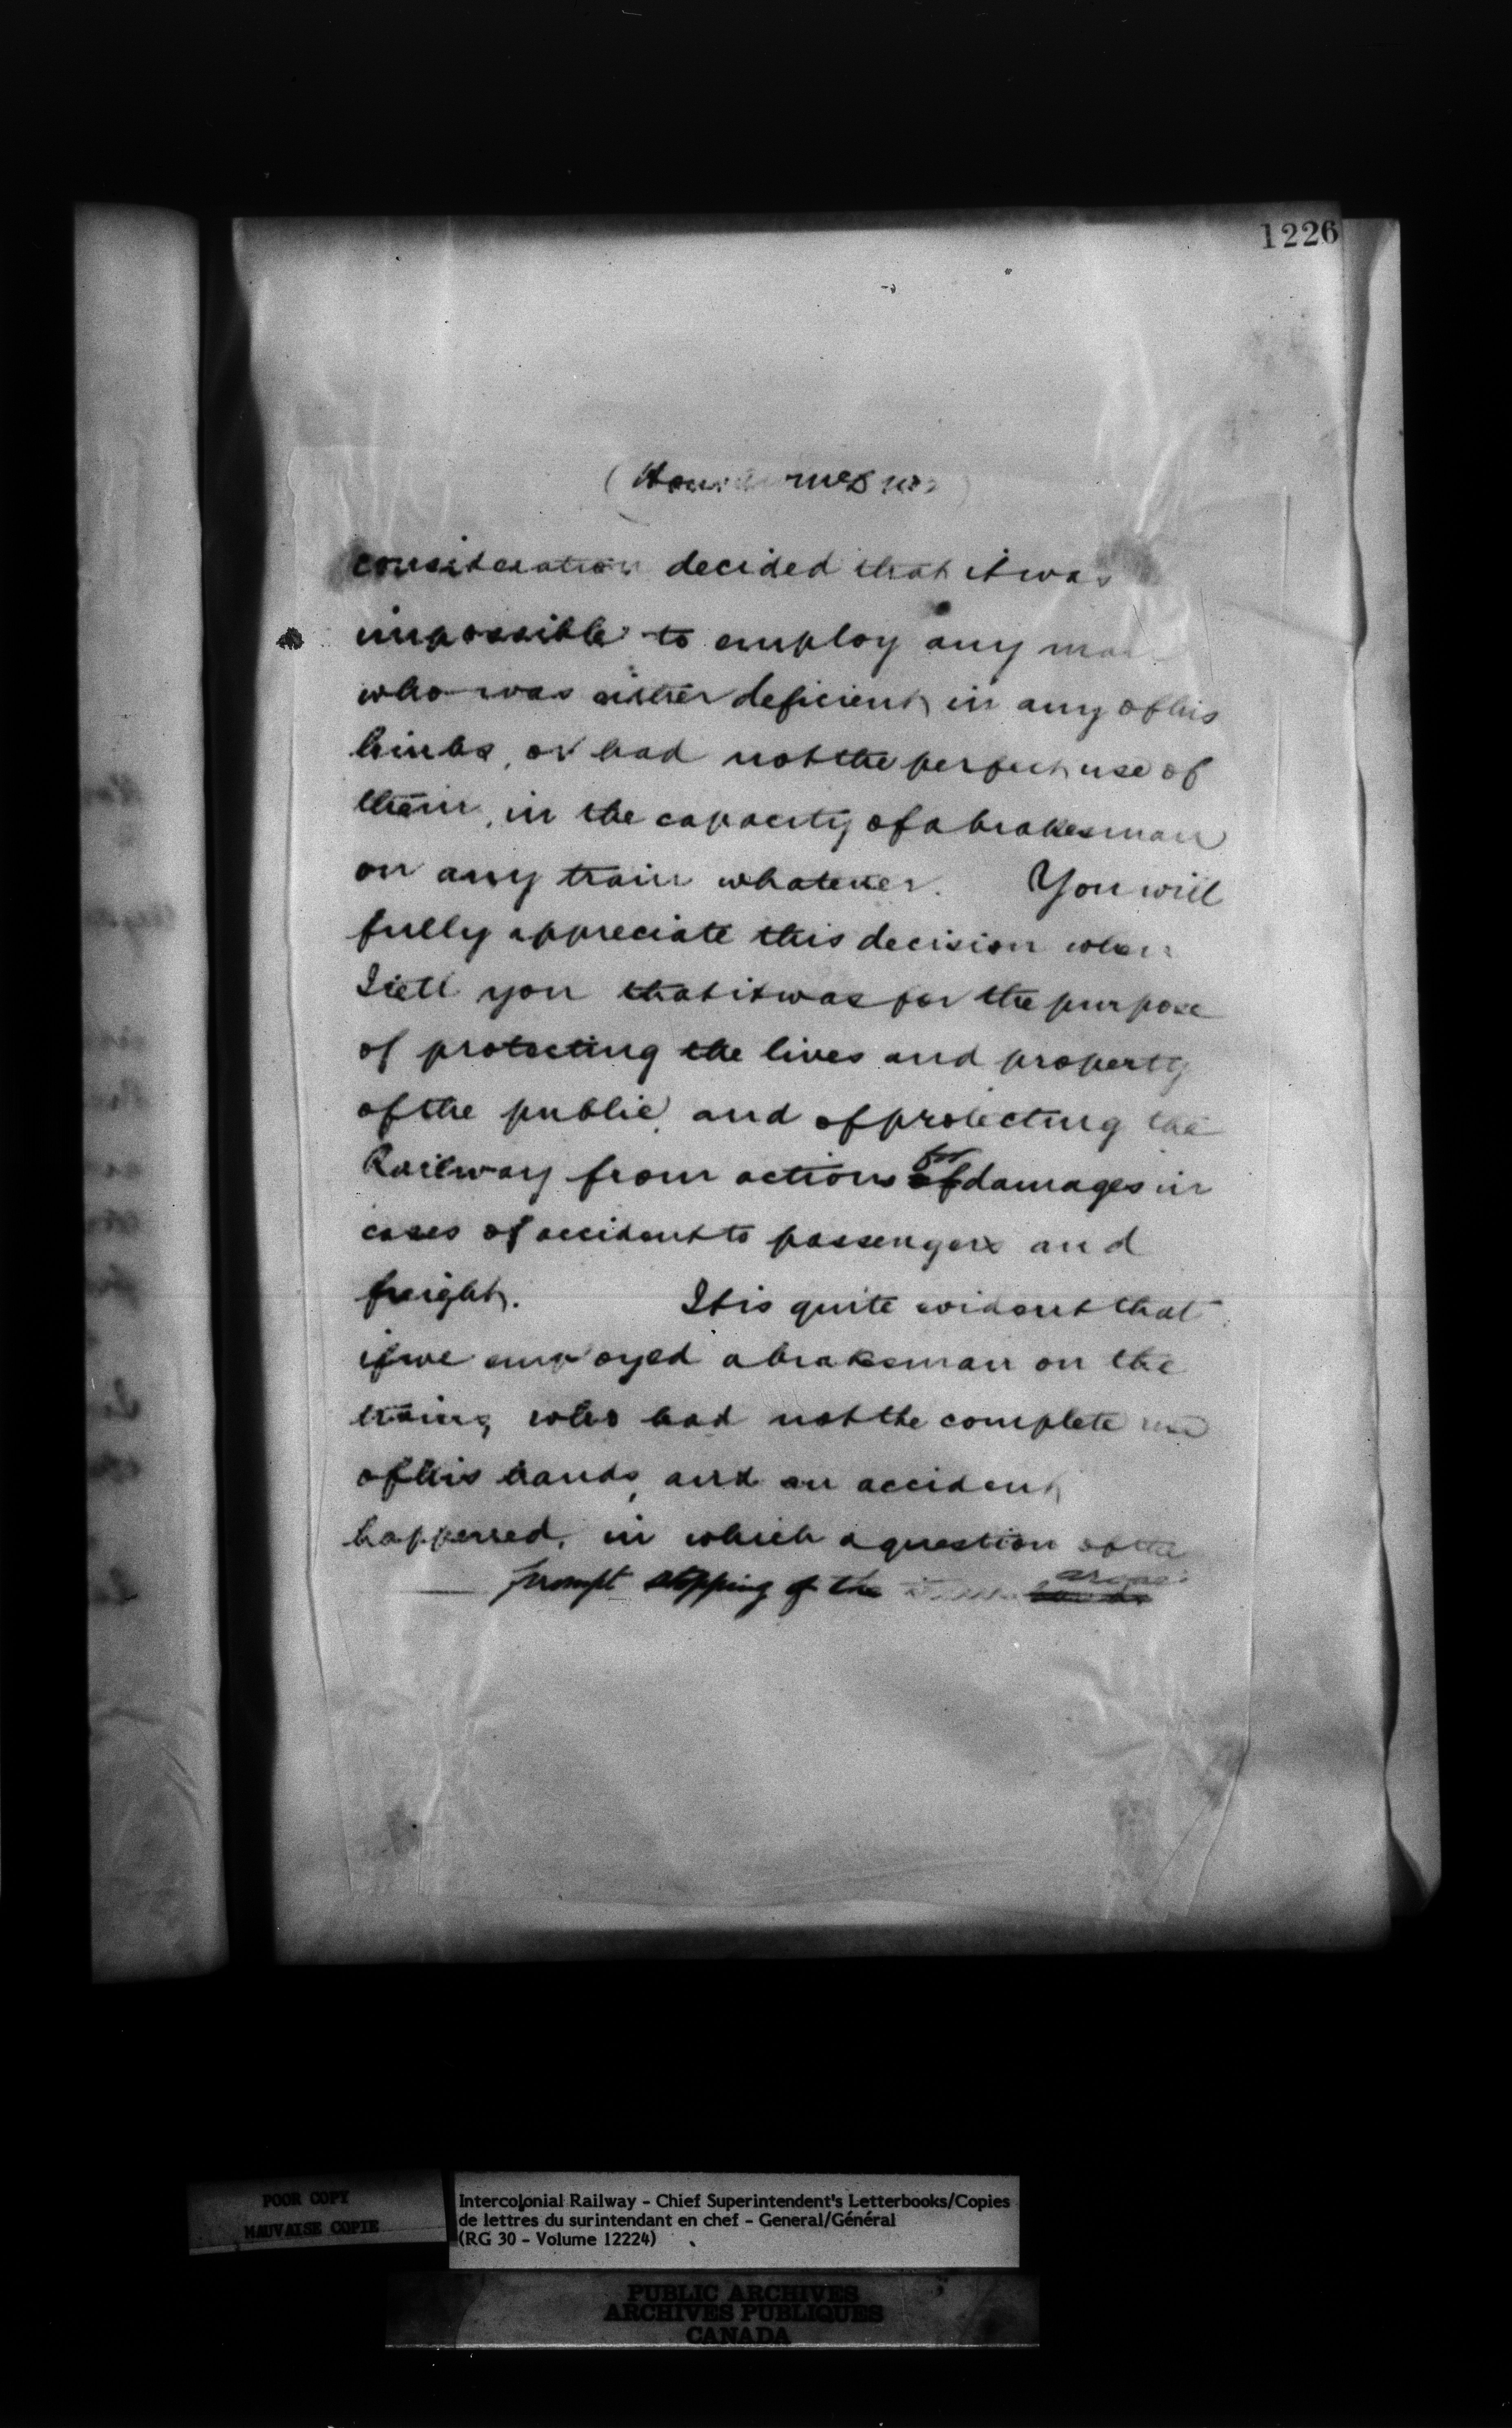 1226
consideration decided that it was
impossible to employ any man
who was either deficient in any of his
limbs, or had not the perfect use of
them, in the capacity of a brakesman
on any train whatever. You will
fully appreciate this decision when
I tell you that it was for the purpose
of protecting the lives and property
of the public, and of protecting the
Railway from actions for damages in
cases of accident to passengers and
freight. It is quite evident that
if we employed a brakesman on the
trains, who had not the complete use
of his hands, and an accident
happened, in which a question of the
prompt stopping of the train arose
POOR COPY
MAUVAISE COPIE
Intercolonial Railway - Chief Superintendent's Letterbooks/Copies
de lettres du surintendant en chef - General/Général
(RG 30 - Volume 12224)
PUBLIC ARCHIVES
ARCHIVES PUBLIQUES
CANADA